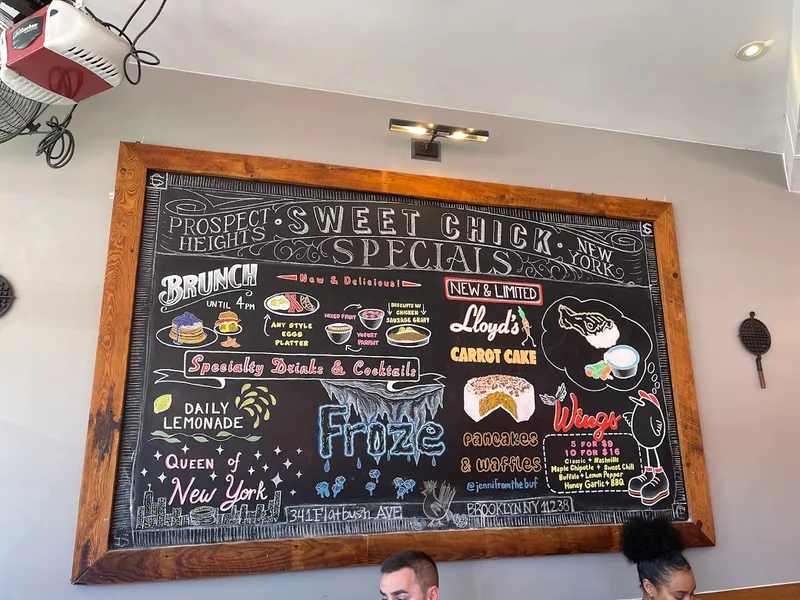 PROSPECT HEIGHTS
· SWEET CHICK ·
NEW YORK
SPECIALS
BRUNCH
UNTIL 4PM
New & Delicious!
ANY STYLE
EGGS
PLATTER
MIXED FRUIT
YOGURT
PARFAIT
BISCUITS W/
CHICKEN
SAUSAGE GRAVY
Specialty Drinks & Cocktails
DAILY
LEMONADE
QUEEN of
New York
Froze
NEW & LIMITED
Lloyd's
CARROT CAKE
PANCAKES
& WAFFLES
@jennifromthebuf
Wings
5 FOR $9
10 FOR $16
Classic + Nashville
Maple Chipotle + Sweet Chili
Buffalo + Lemon Pepper
Honey Garlic + BBQ
341 Flatbush AVE
BROOKLYN NY 11238